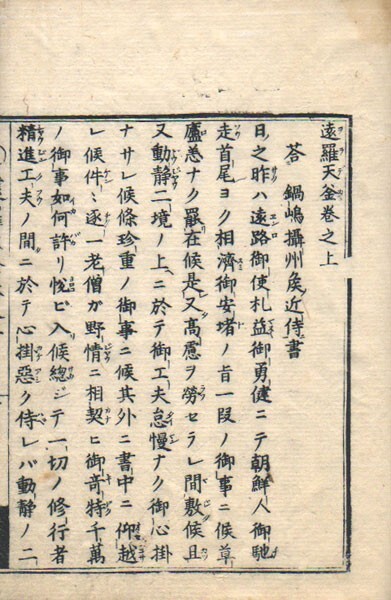 遠羅天釜巻之上
答 鍋嶋攝州矦近侍書
日之昨ハ遠路御使札益御勇健ニテ朝鮮人御馳
走首尾ヨク相濟御安堵ノ旨一段ノ御事ニ候草
廬恙ナク罷在候是又髙慮ヲ勞セラレ間敷候且
又動靜二境ノ上ニ於テ御工夫怠慢ナク御心掛
ナサレ候條珍重ノ御事ニ候其外ニ書中ニ仰越
レ候件〻逐一老僧ガ野情ニ相契ヒ御竒特千萬
ノ御事如何許リ悦ビ入候總ジテ一切ノ修行者
精進工夫ノ間ニ於テ心掛惡ク侍レバ動靜ノ二